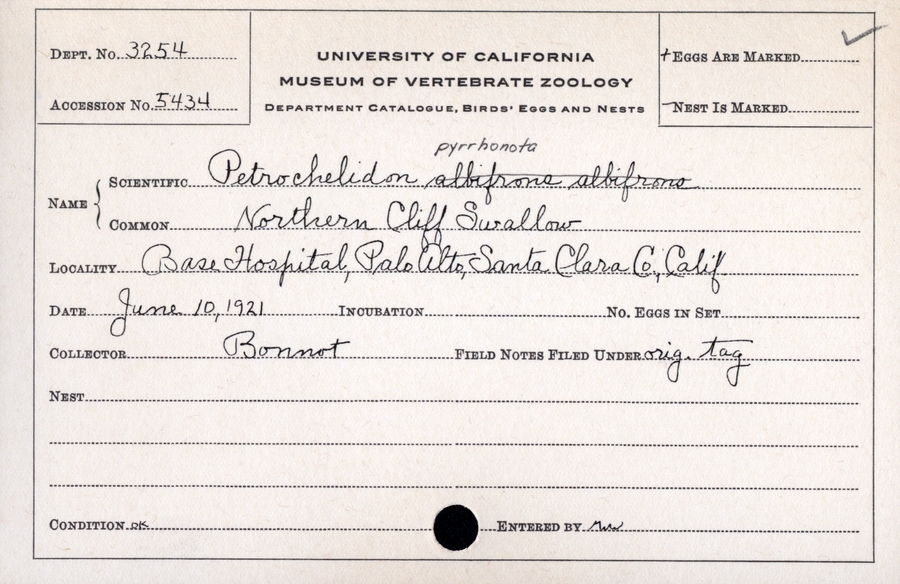 Dept. No. 3254
Accession No. 5434
UNIVERSITY OF CALIFORNIA
MUSEUM OF VERTEBRATE ZOOLOGY
Department Catalogue, Birds' Eggs and Nests
+ Eggs Are Marked
— Nest Is Marked
pyrrhonota
Name { Scientific Petrochelidon albifrons albifrons
Common Northern Cliff Swallow
Locality Base Hospital, Palo Alto, Santa Clara Co., Calif
Date June 10, 1921 Incubation No. Eggs in Set
Collector Bonnot Field Notes Filed Under orig. tag
Nest
Condition OK Entered by